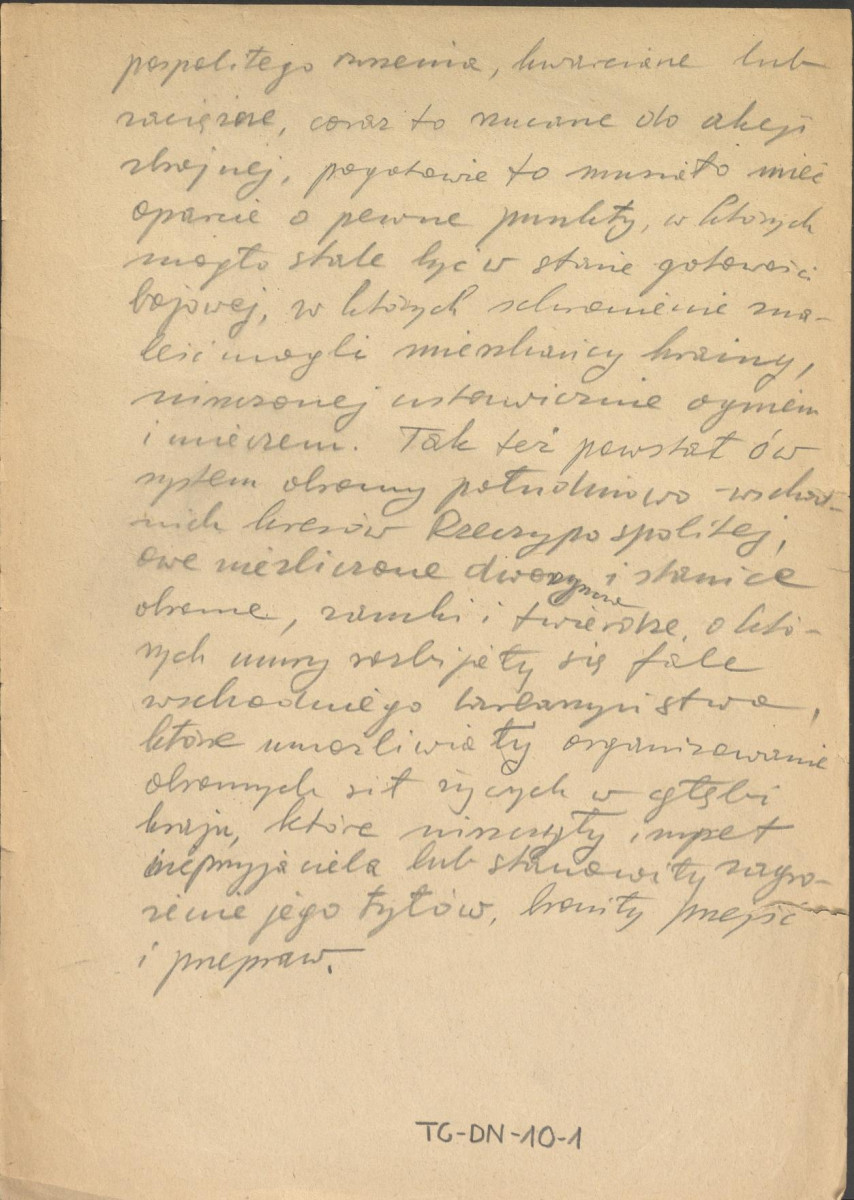 pospolitego ruszenia, kwarciane lub
zaciężne, coraz to rzucane do akcji
zbrojnej, pogotowie to musiało mieć
oparcie o pewne punkty, w których
mogło stale być w stanie gotowości
bojowej, w których schronienie zna-
leść mogli mieszkańcy krainy,
niszczonej ustawicznie ogniem
i mieczem. Tak też powstał ów
system obronny południowo-wschod-
nich kresów Rzeczypospolitej,
owe niezliczone dworzyszcza i stanice
obronne, zamki i twierdze, o któ-
rych mury rozbijały się fale
wschodniego barbarzyństwa,
które umożliwiały organizowanie
obronnych sił żywych w głębi
kraju, które niszczyły impet
nieprzyjaciela lub stanowiły zagro-
żenie jego tyłów, broniły przejść
i przepraw.
TG-DN-10-1